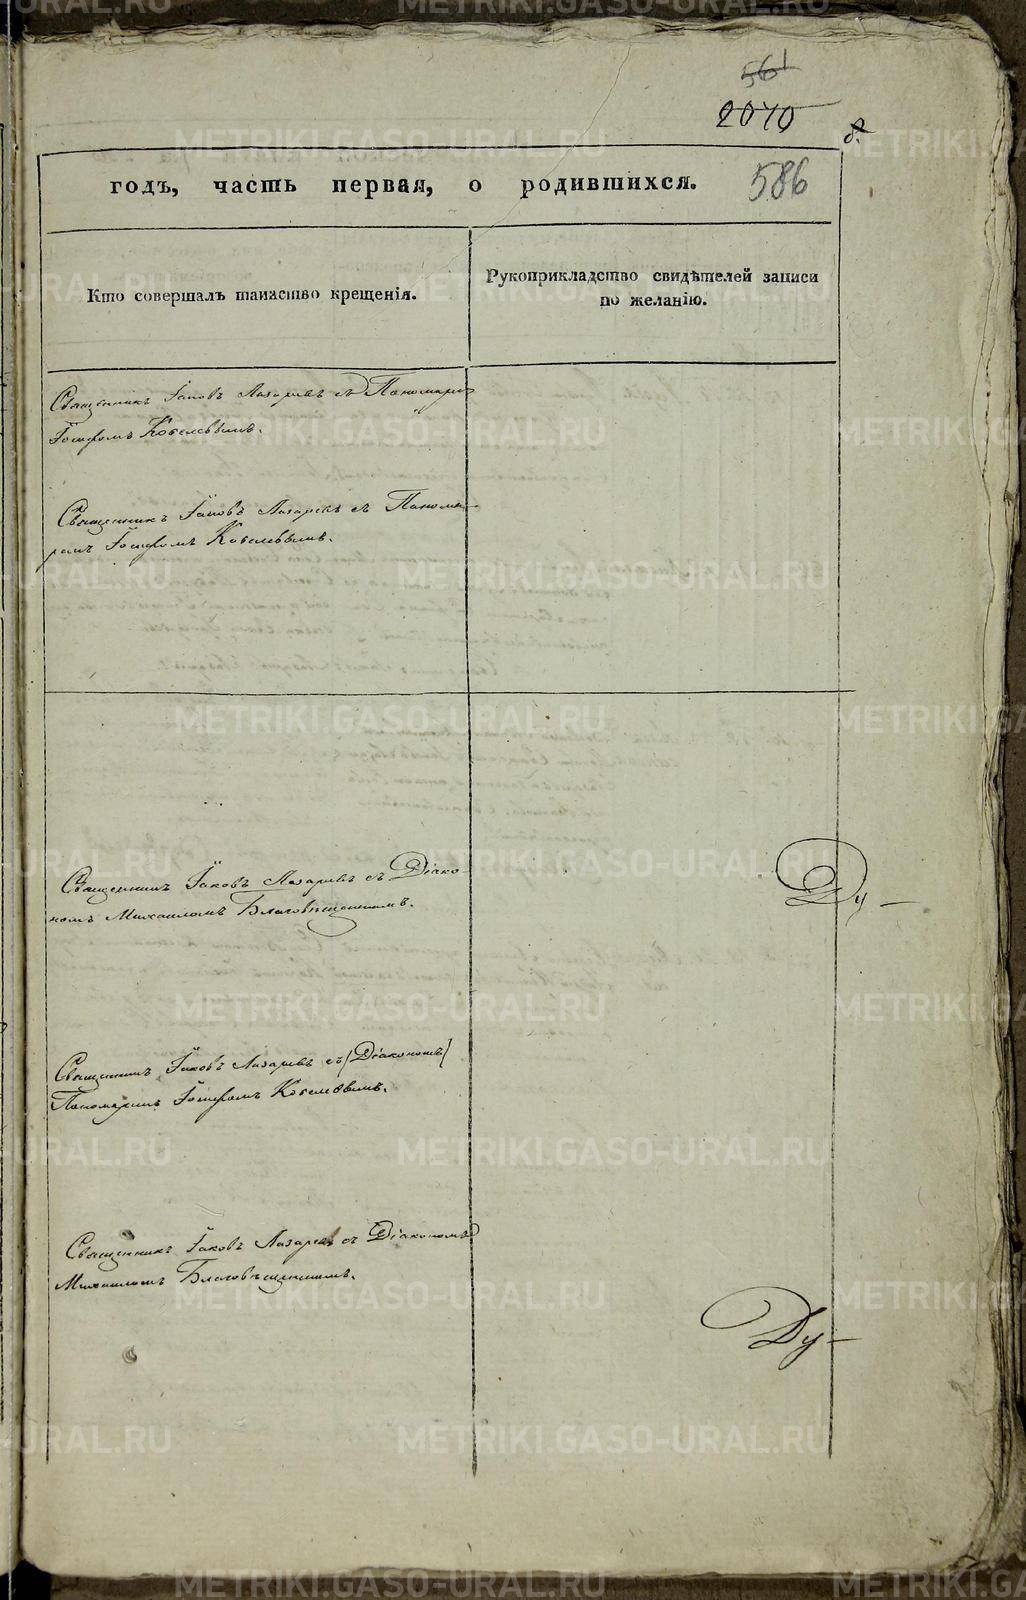 561
2070
годъ, часть первая, о родившихся.
586
Кто совершалъ таинство крещенія.
Рукоприкладство свидѣтелей записи
по желанію.
Священникъ Іаковъ Лазаревъ съ Пономаремъ
Іосифомъ Ковелевымъ.
Священникъ Іаковъ Лазаревъ съ Понома-
ремъ Іосифомъ Ковелевымъ.
Священникъ Іаковъ Лазаревъ съ Діако-
номъ Михаиломъ Благовѣщенскимъ.
Ду
Священникъ Іаковъ Лазаревъ съ (Діакономъ)
Пономаремъ Іосифомъ Ковелевымъ.
Священникъ Іаковъ Лазаревъ съ Діакономъ
Михаиломъ Благовѣщенскимъ.
Ду
METRIKI.GASO-URAL.RU